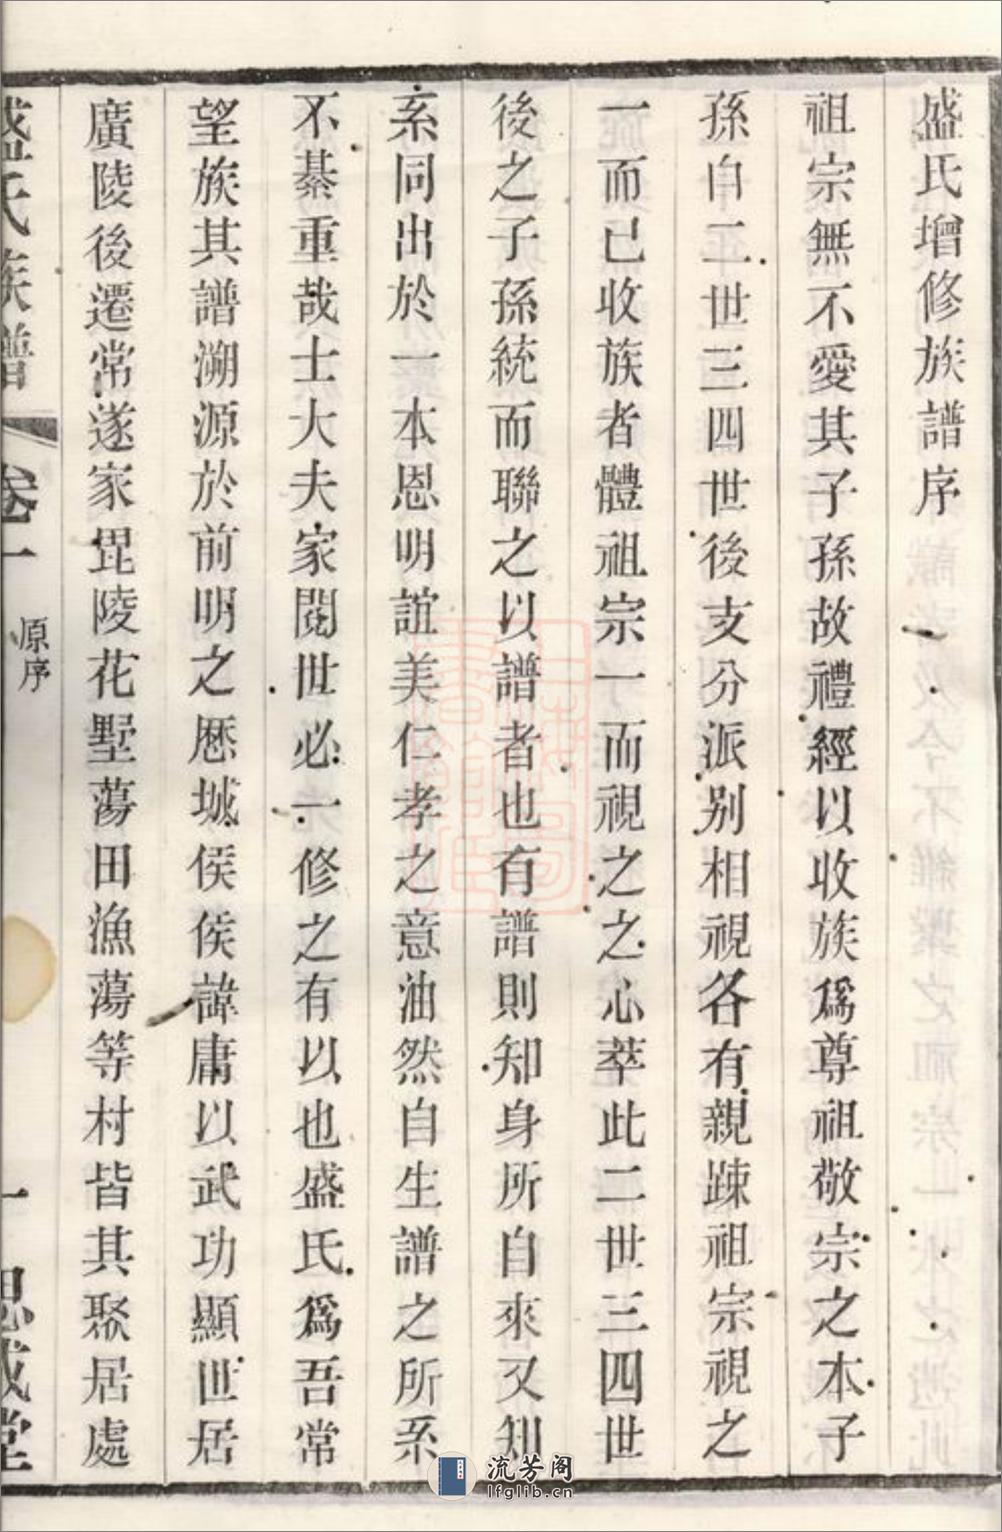 盛氏增修族譜序
祖宗無不愛其子孫故禮經以收族爲尊祖敬宗之本子
孫自二世三四世後支分派别相視各有親踈祖宗視之
一而已收族者體祖宗一而視之之心萃此二世三四世
後之子孫統而聯之以譜者也有譜則知身所自來又知
系同出於一本恩明誼美仁孝之意油然自生譜之所系
不綦重哉士大夫家閱世必一修之有以也盛氏爲吾常
望族其譜溯源於前明之歴城侯侯諱庸以武功顯世居
廣陵後遷常遂家毘陵花墅蕩田漁蕩等村皆其聚居處
盛氏族譜 卷一 原序 一 思成堂
流芳阁
lfglib.cn